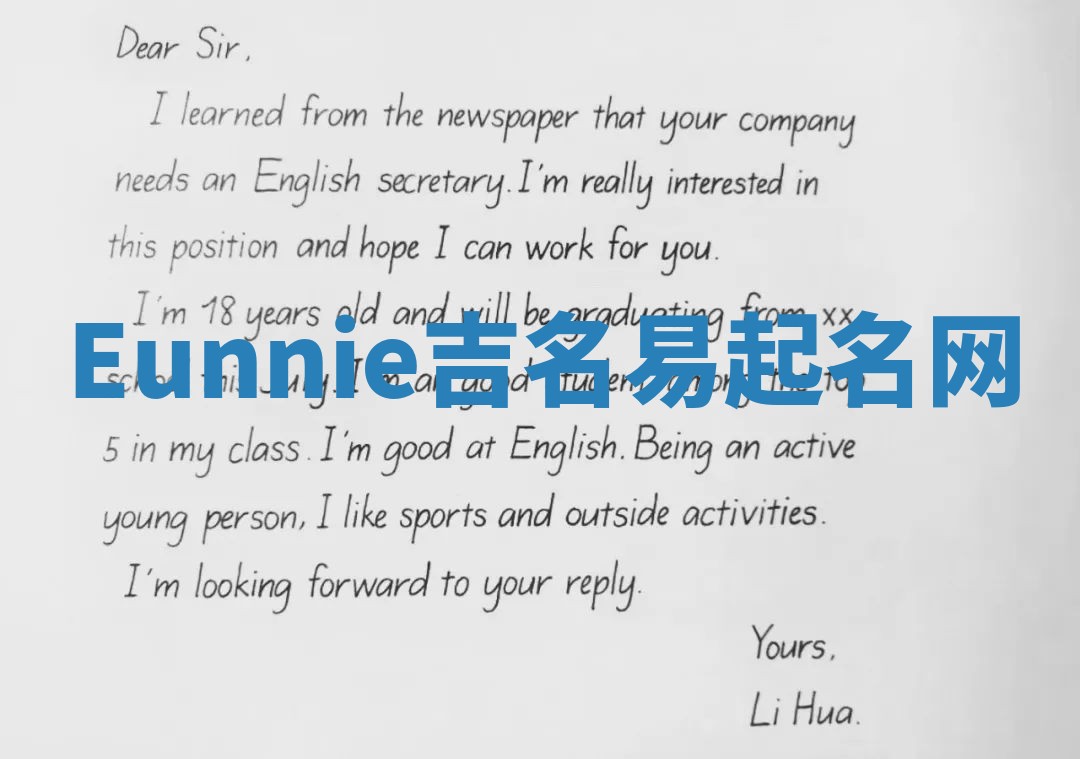 Dear Sir,
I learned from the newspaper that your company
needs an English secretary. I'm really interested in
this position and hope I can work for you.
I'm 18 years old and will be graduating from xx
Eunnie吉名易起名网
school this July. I'm a good student among the top
5 in my class. I'm good at English. Being an active
young person, I like sports and outside activities.
I'm looking forward to your reply.
Yours,
Li Hua.